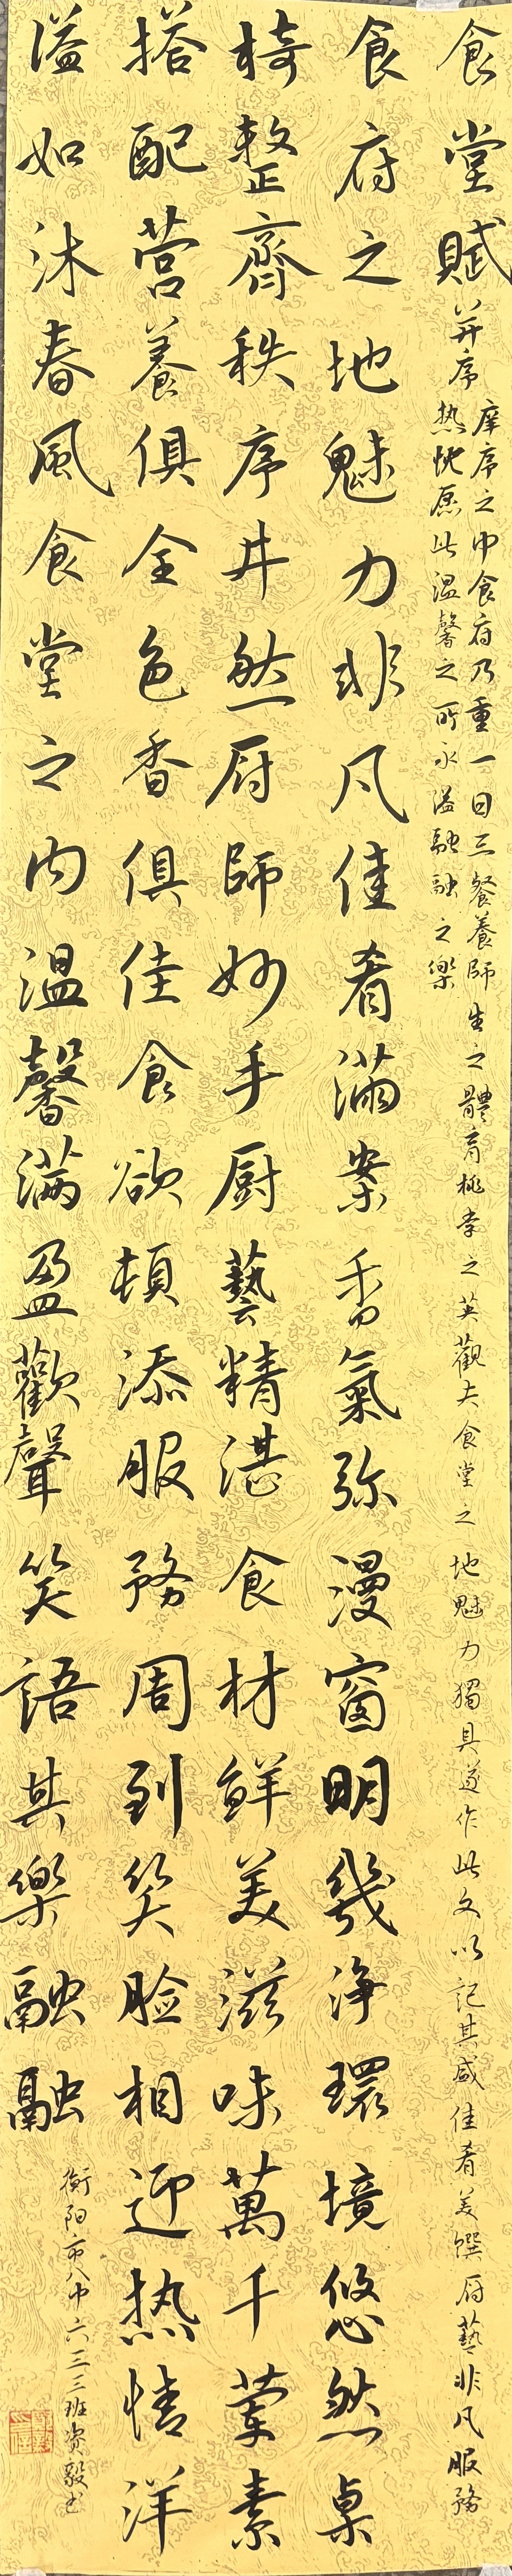 食堂賦
并序
庠序之中食府乃重一日三餐養師生之體育桃李之英觀夫食堂之地魅力獨具遂作此文以記其盛佳肴美饌厨藝非凡服務
热忱愿此温馨之所永溢融融之樂
食府之地魅力非凡佳肴满案香氣弥漫窗明幾净環境悠然桌
椅整齊秩序井然厨師妙手厨藝精湛食材鲜美滋味萬千葷素
搭配营養俱全色香俱佳食欲頓添服務周到笑脸相迎热情洋
溢如沐春風食堂之内温馨满盈歡聲笑語其樂融融
衡阳市八中六三三班资毅书